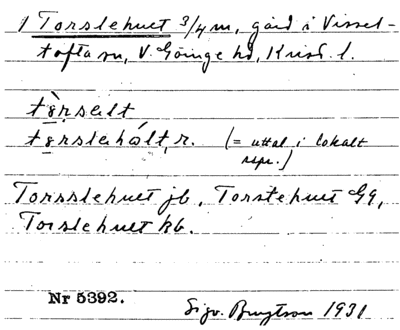 1 Torslehuet 3/4 m, gård i Vissel-
tofta sn, V. Göinge hd, Krist. l.
tòrselt
torslehált, r. (= uttal i lokalt
repr.)
Torsslehuet jb, Torstehuet GG,
Torslehuet kb.
Nr 5392.
Sigv. Bengtson 1931